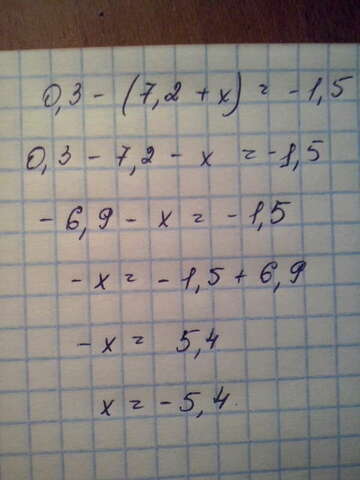 0,3 - (7,2 + x) = -1,5
0,3 - 7,2 - x = -1,5
-6,9 - x = -1,5
-x = -1,5 + 6,9
-x = 5,4
x = -5,4.